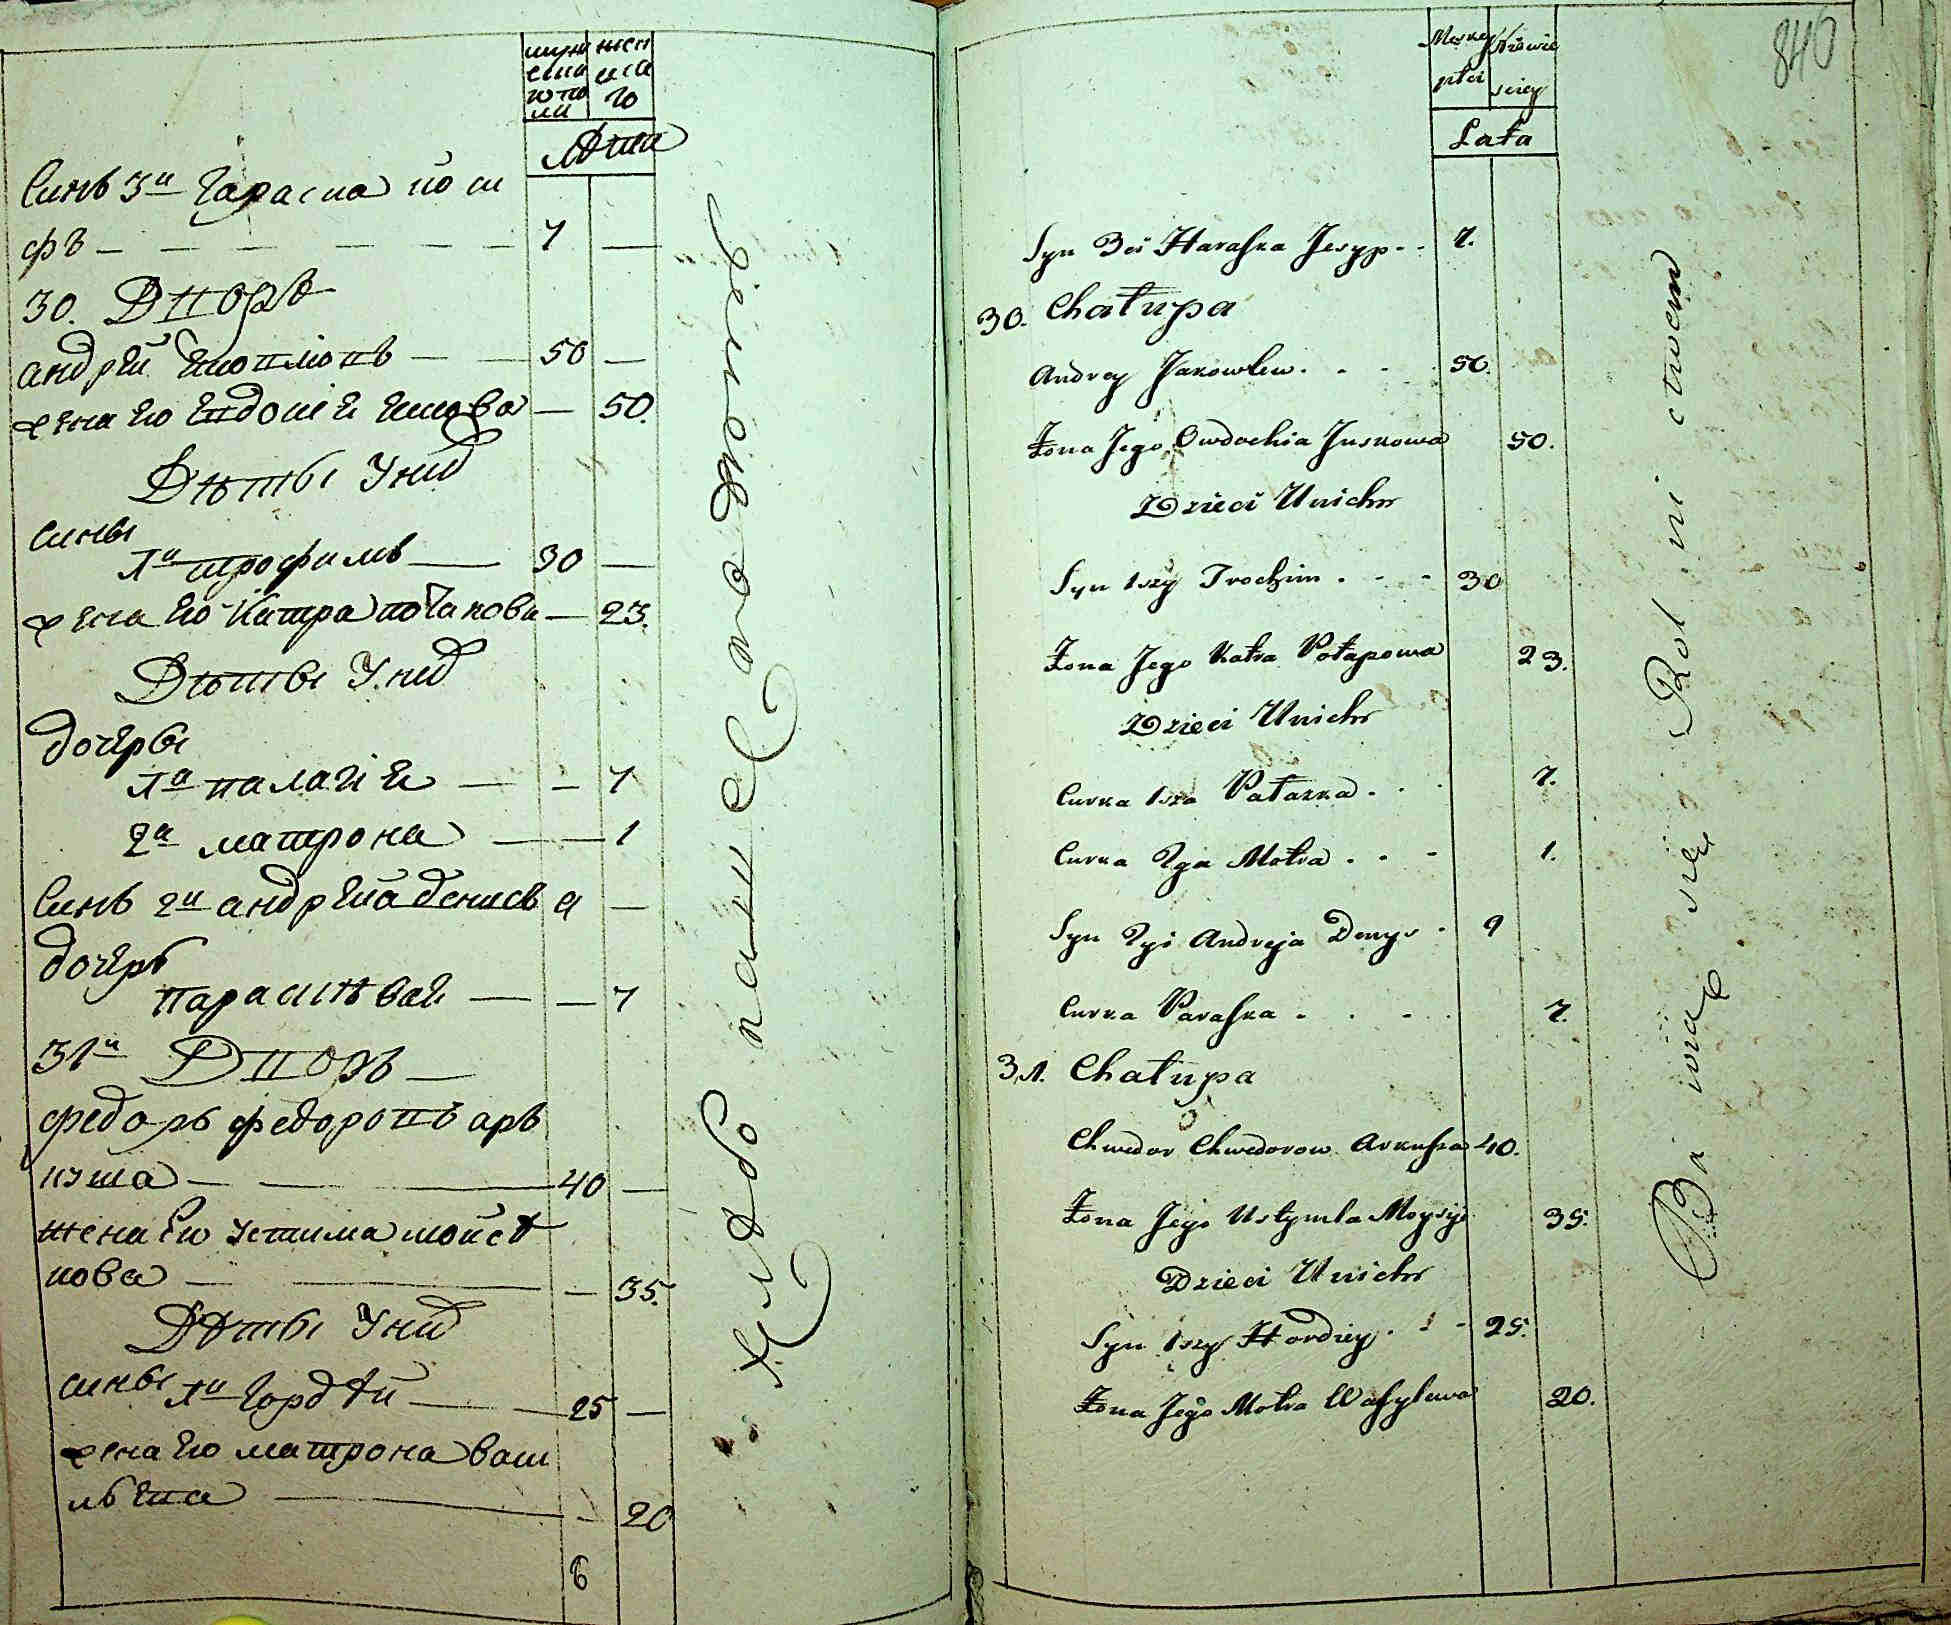 мужеска го по ла
женска го
Лѣта
Синъ 3й Гараска Йоси
фъ 7
30. Дворъ
Андрей Яковлювъ 50
жена Ею Евдошiя Ескова 50.
Дѣты У нихъ
Сины
1й Трофимъ 30
жена Ею Катра Потапова 23.
Дѣты У нихъ
Дочеры
1а Палагiя 7
2а Матрона 1
Синъ 2й Андрея Денисъ 9
Дочеръ
Парасковея 7
31й Дворъ
Федоръ Федоровъ Арь
куша 40
жена Ею Устима Мойсѣ
кова 35.
Дѣты У нихъ
Сины 1й Гордѣй 25
жена Ею Матрона Васи
льева 20
6
Хлѣбопашествомъ
840
Męskiey płci
Niewiesciey
Lata
Syn 3ci Haraska Jesyp 7.
30. Chałupa
Andrey Jakowlew 50.
Żona Jego Owdochia Juskowa 50.
Dzieci U nichż
Syn 1szy Trochim 30
Żona Jego Katra Potapowa 23.
Dzieci U nich
Curka 1sza Pałazka 7.
Curka 2ga Motra 1.
Syn 2gi Andreja Denys 9
Curka Paraska 7.
31. Chałupa
Chwedor Chwedorow Arkusza 40.
Żona Jego Ustymla Moysije 35.
Dzieci U nich
Syn 1szy Hordiey 25.
Żona Jego Motra Wasylewa 20.
Bawią się Rolnictwem